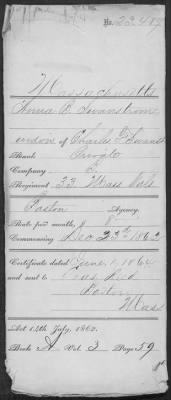 No. 23,419
Massachusetts
Anna C. Swanstrom
widow of Charles G. Swanst
Rank, Private
Company
Regiment 33 Mass Vols
Boston Agency.
Rate per month, 8
Commencing Nov 23d 1863
Certificate dated June 1, 1864
and sent to
Boston
Mass
Act 14th July, 1862.
Book A Vol. 3 Page 59